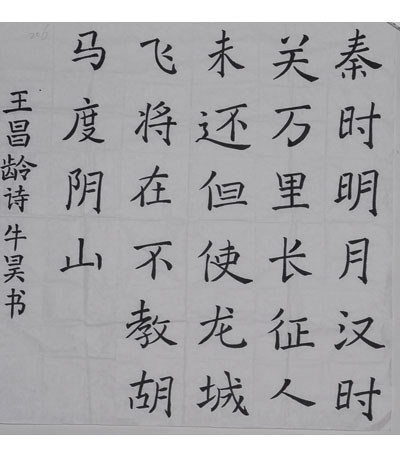 秦时明月汉时
关万里长征人
未还但使龙城
飞将在不教胡
马度阴山
王昌龄诗牛昊书